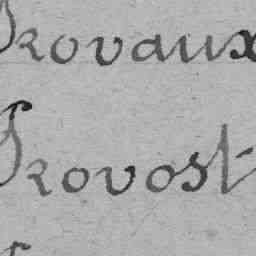 Provaux
Provost